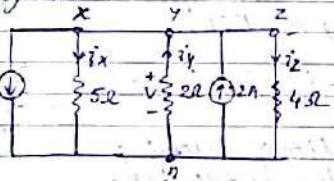 x y z
ix iy iz
+
v 5Ω 2Ω 2A 4Ω
-
n